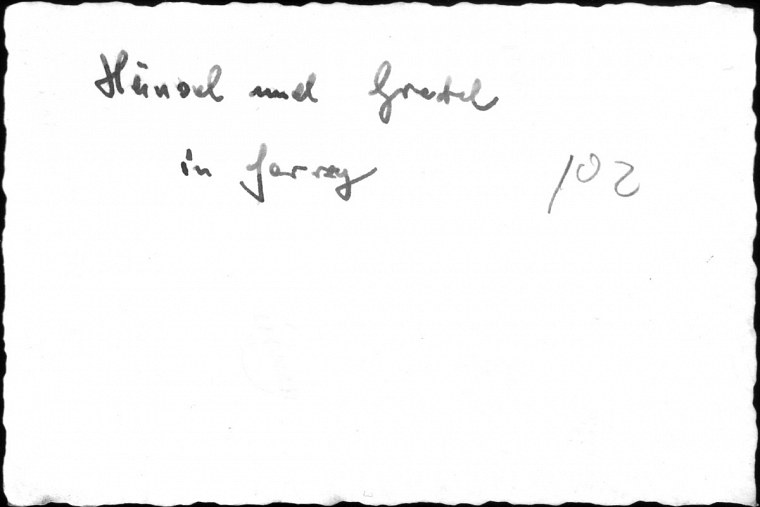 Hänsel und Gretel
in 102